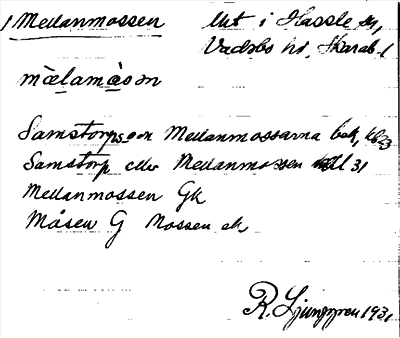 1 Mellanmossen Utt i Hassle sn,
Vadsbo hd, Skarab. l
mèlamåsən
Samstorp och Mellanmossarna
Samstorp eller Mellanmossen 31
Mellanmossen Gk
Måsen G Mossen ek
R. Ljunggren 1931